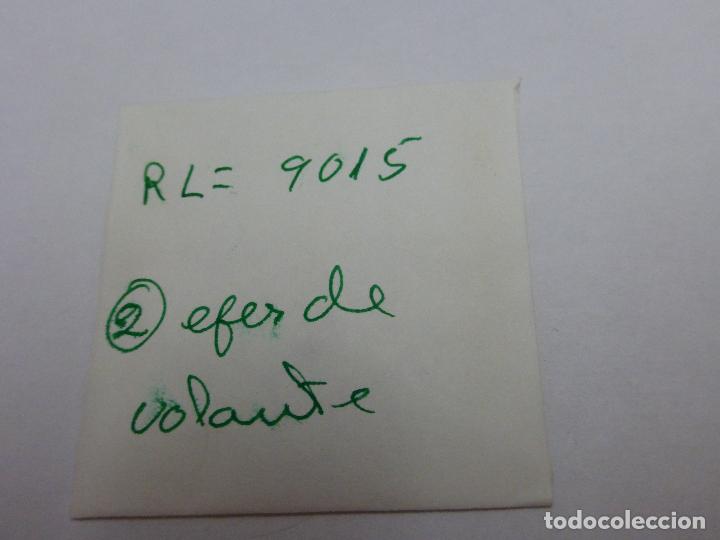 RL= 9015
2 efes de
volante
todocoleccion.net